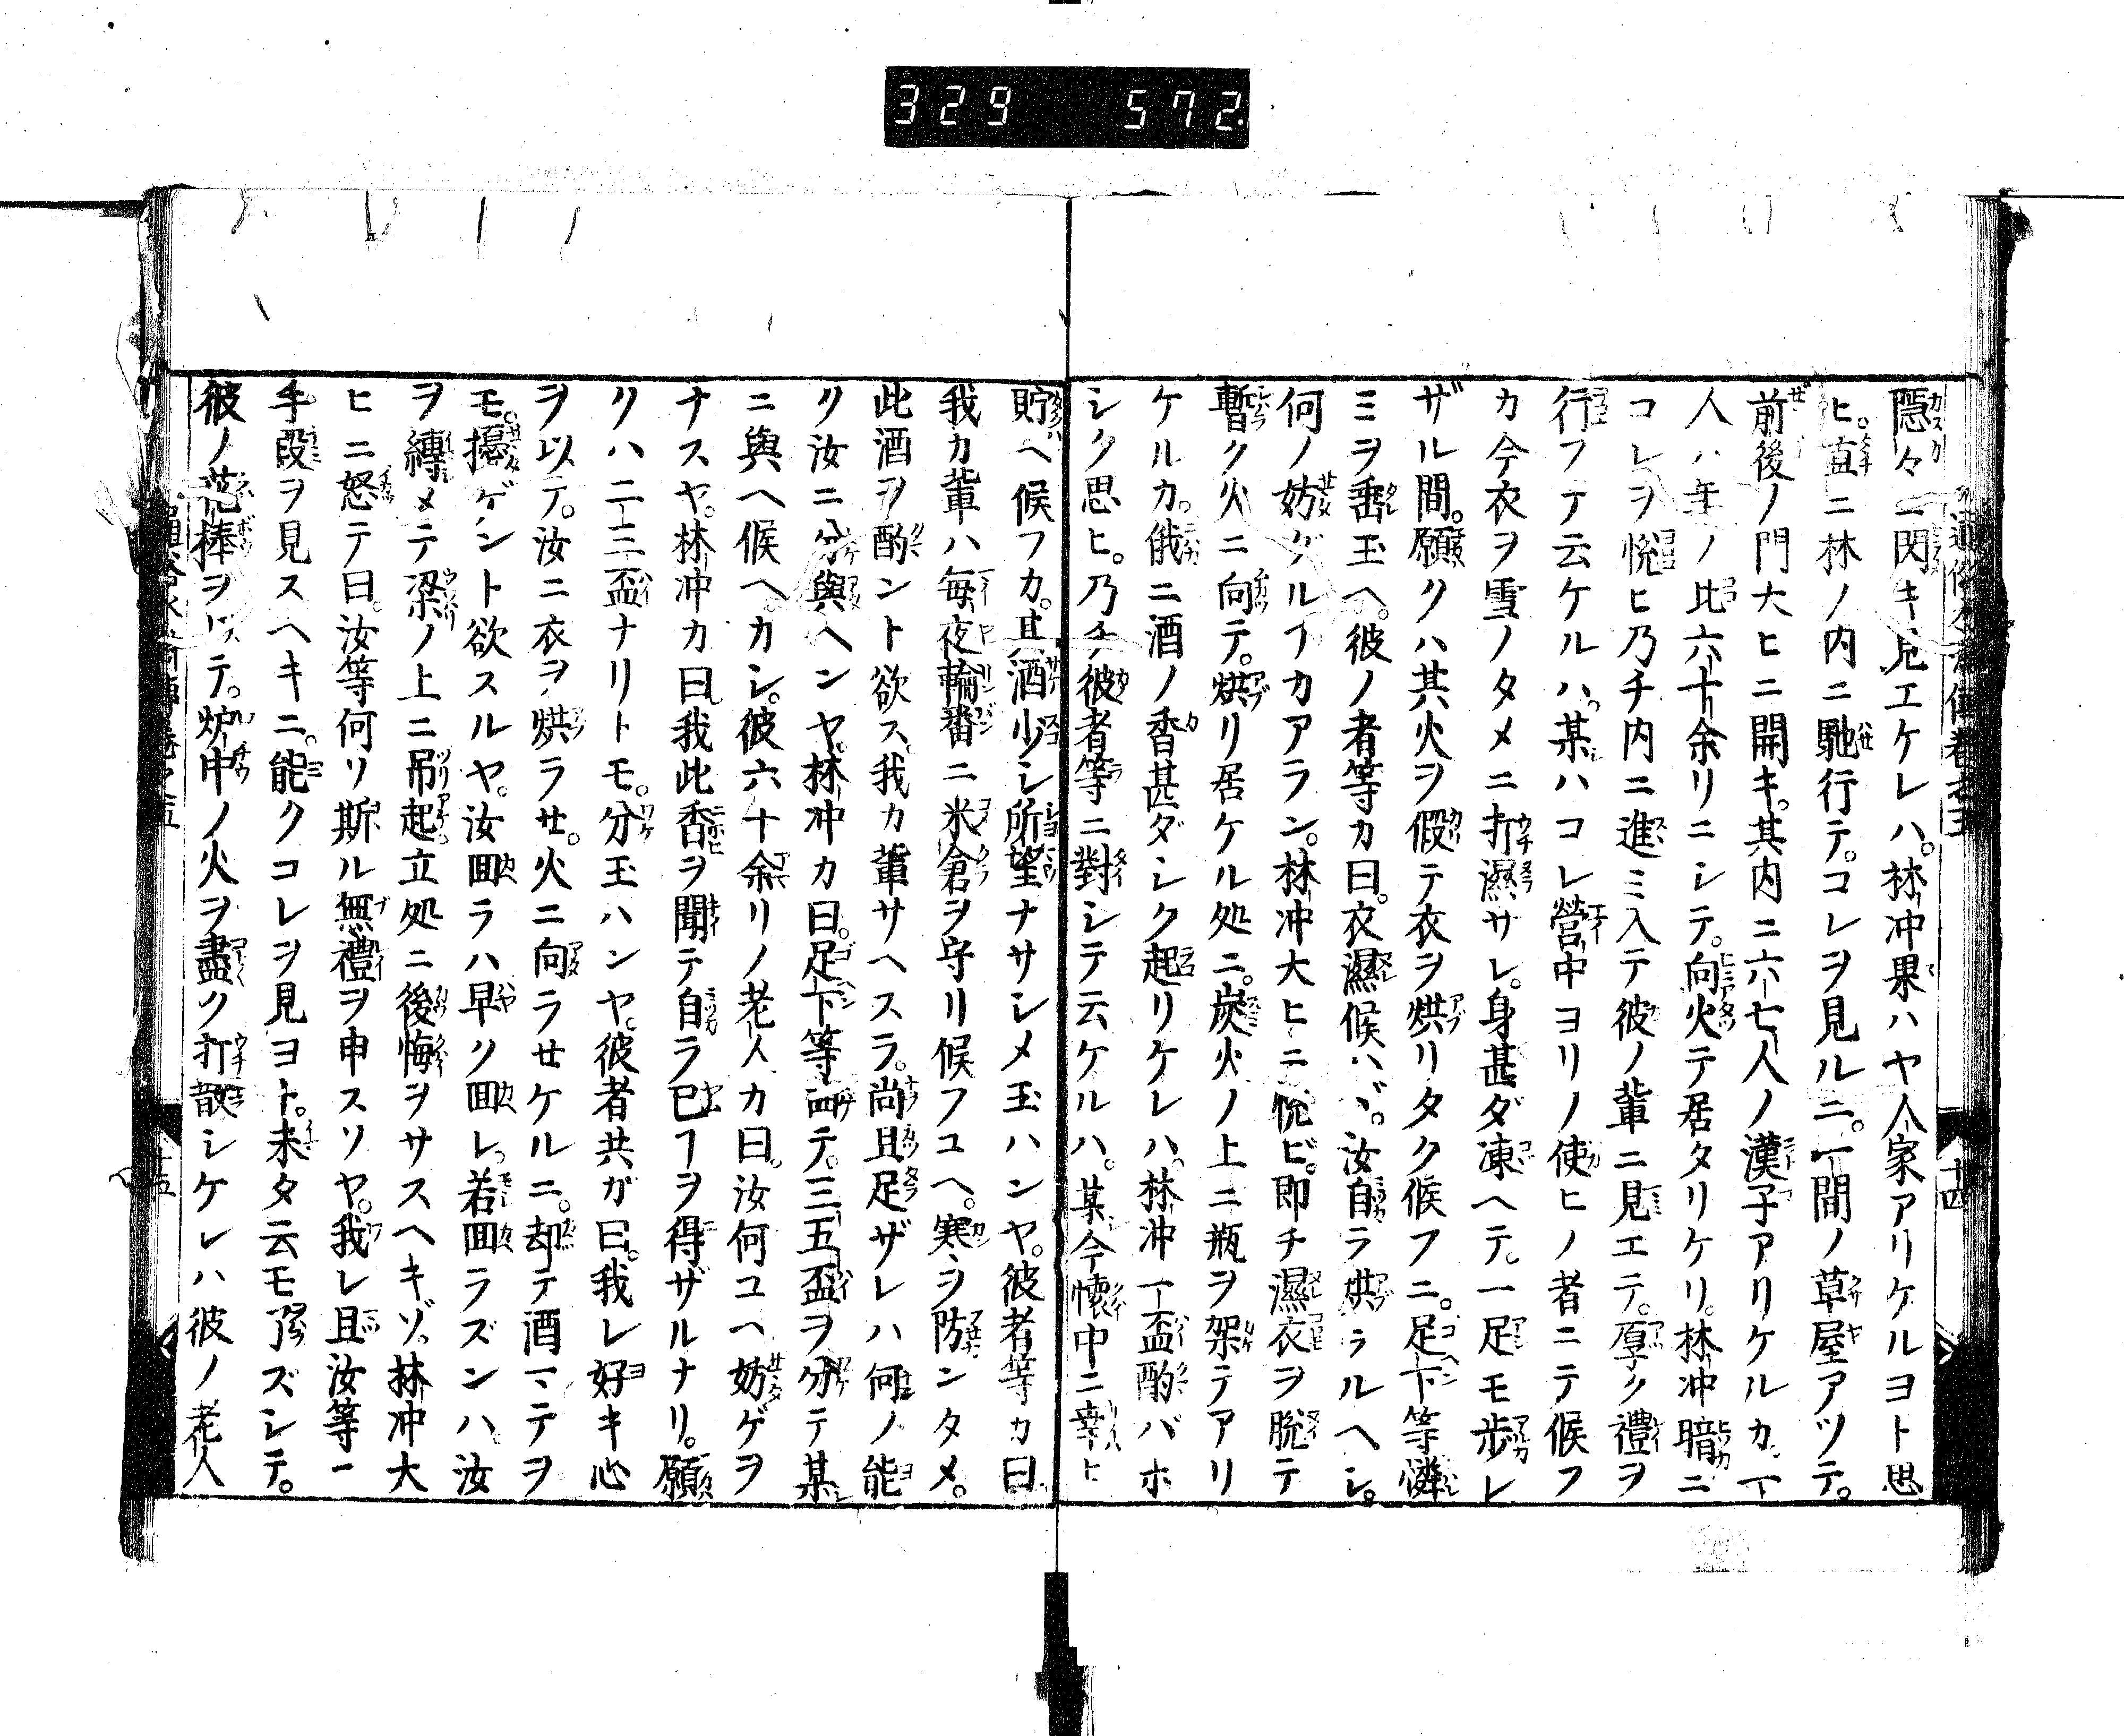 329 572
隱々ニ閃キ見エケレハ。林冲果ハヤ人家アリケルヨト思
ヒ。直ニ林ノ内ニ馳行テ。コレヲ見ルニ。一間ノ草屋アツテ。
前後ノ門大ヒニ開キ。其内ニ六七人ノ漢子アリケルカ。一
人ハ年ノ比六十余リニシテ。向火テ居タリケリ。林冲暗ニ
コレヲ悦ヒ乃チ内ニ進ミ入テ彼ノ輩ニ見エテ。厚ク禮ヲ
行フテ云ケルハ。某ハコレ營中ヨリノ使ヒノ者ニテ候フ
カ今衣ヲ雪ノタメニ打濕サレ。身甚ダ凍ヘテ。一足モ歩レ
ザル間。願クハ其火ヲ假テ衣ヲ烘リタク候フニ。足下等憐
ミヲ垂玉ヘ。彼ノ者等カ曰。衣濕候ハヾ。汝自ラ烘ラルヘシ。
何ノ妨ゲルヿカアラン。林冲大ヒニ悦ビ。即チ濕衣ヲ脱テ
暫ク火ニ向テ。烘リ居ケル処ニ。炭火ノ上ニ瓶ヲ架テアリ
ケルカ。俄ニ酒ノ香甚ダシク起リケレハ。林冲一盃酌バホ
シク思ヒ。乃チ彼者等ニ對シテ云ケルハ。某今懷中ニ幸ヒ
貯ヘ候フカ。其酒少シ所望ナサシメ玉ハンヤ。彼者等カ曰
我カ輩ハ毎夜輪番ニ米倉ヲ守リ候フユヘ。寒ヲ防ンタメ。
此酒ヲ酌ント欲ス。我カ輩サヘスラ。尚且足ザレハ何ノ能
ク汝ニ分與ヘンヤ。林冲カ曰。足下等面テ。三五盃ヲ分テ某
ニ與ヘ候ヘ。カシ。彼六十余リノ老人カ曰。汝何ユヘ妨ゲヲ
ナスヤ。林冲カ曰。我此香ヲ聞テ自ラ已ヿヲ得ザルナリ。願
クハ二三盃ナリトモ。分玉ハンヤ。彼者共ガ曰。我レ好キ心
ヲ以テ。汝ニ衣ヲ烘ラせ。火ニ向ラせケルニ。却テ酒マテヲ
モ。擾ゲント欲スルヤ。汝囬ラハ早ク囬レ。若囬ラズンハ。汝
ヲ縛メテ梁ノ上ニ吊起立処ニ後悔ヲサスヘキゾ。林冲大
ヒニ怒テ曰。汝等何リ斯ル無禮ヲ申スリヤ。我レ且汝等ニ
手段ヲ見スヘキニ。能クコレヲ見ヨト。未タ云モ了ズシテ。
彼ノ花棒ヲ以テ。炉中ノ火ヲ盡ク打散シケレハ彼ノ老人
十四
十五